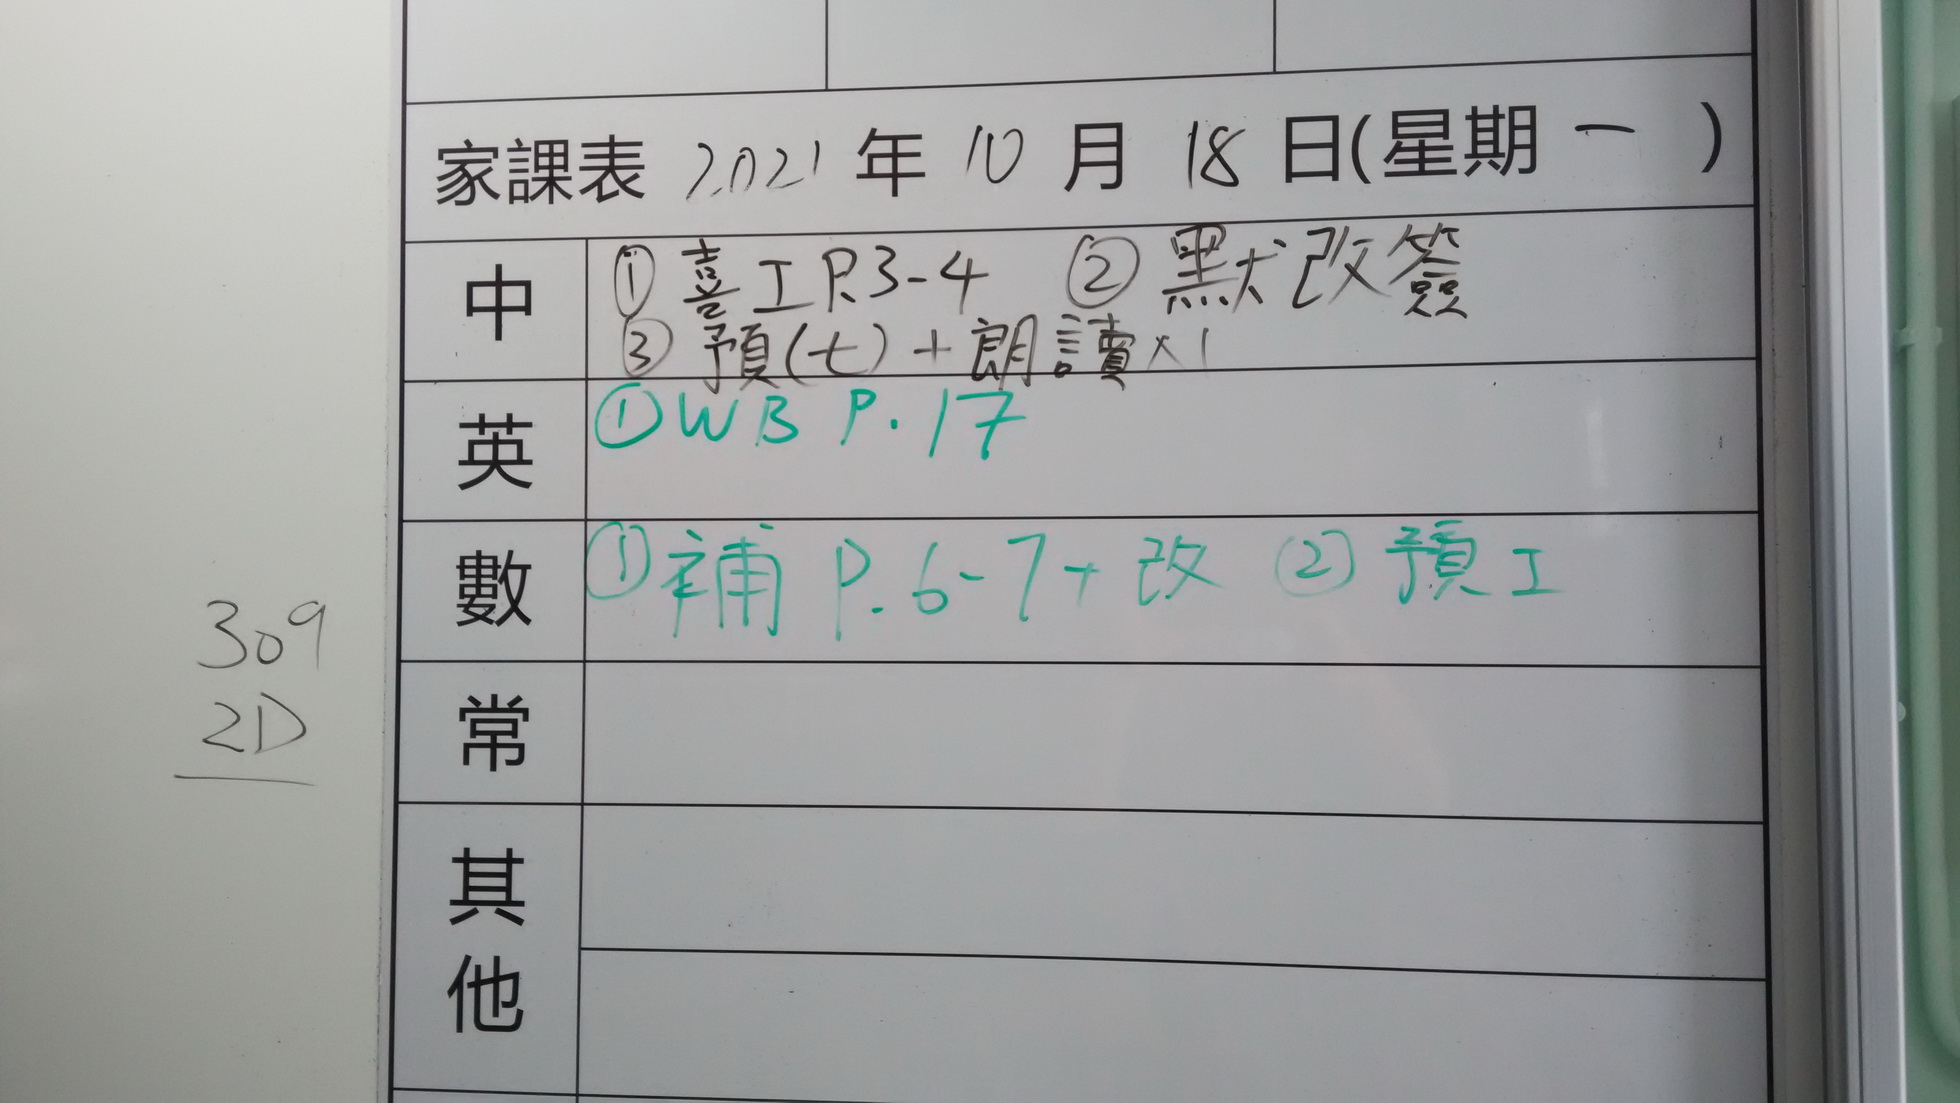 家課表 2021 年 10 月 18 日(星期一)
中 ① 喜工P.3-4 ② 默改簽
③ 預(七)+朗讀×1
英 ①WB P.17
數 ①補 P.6-7+改 ② 預工
309
2D
常
其
他